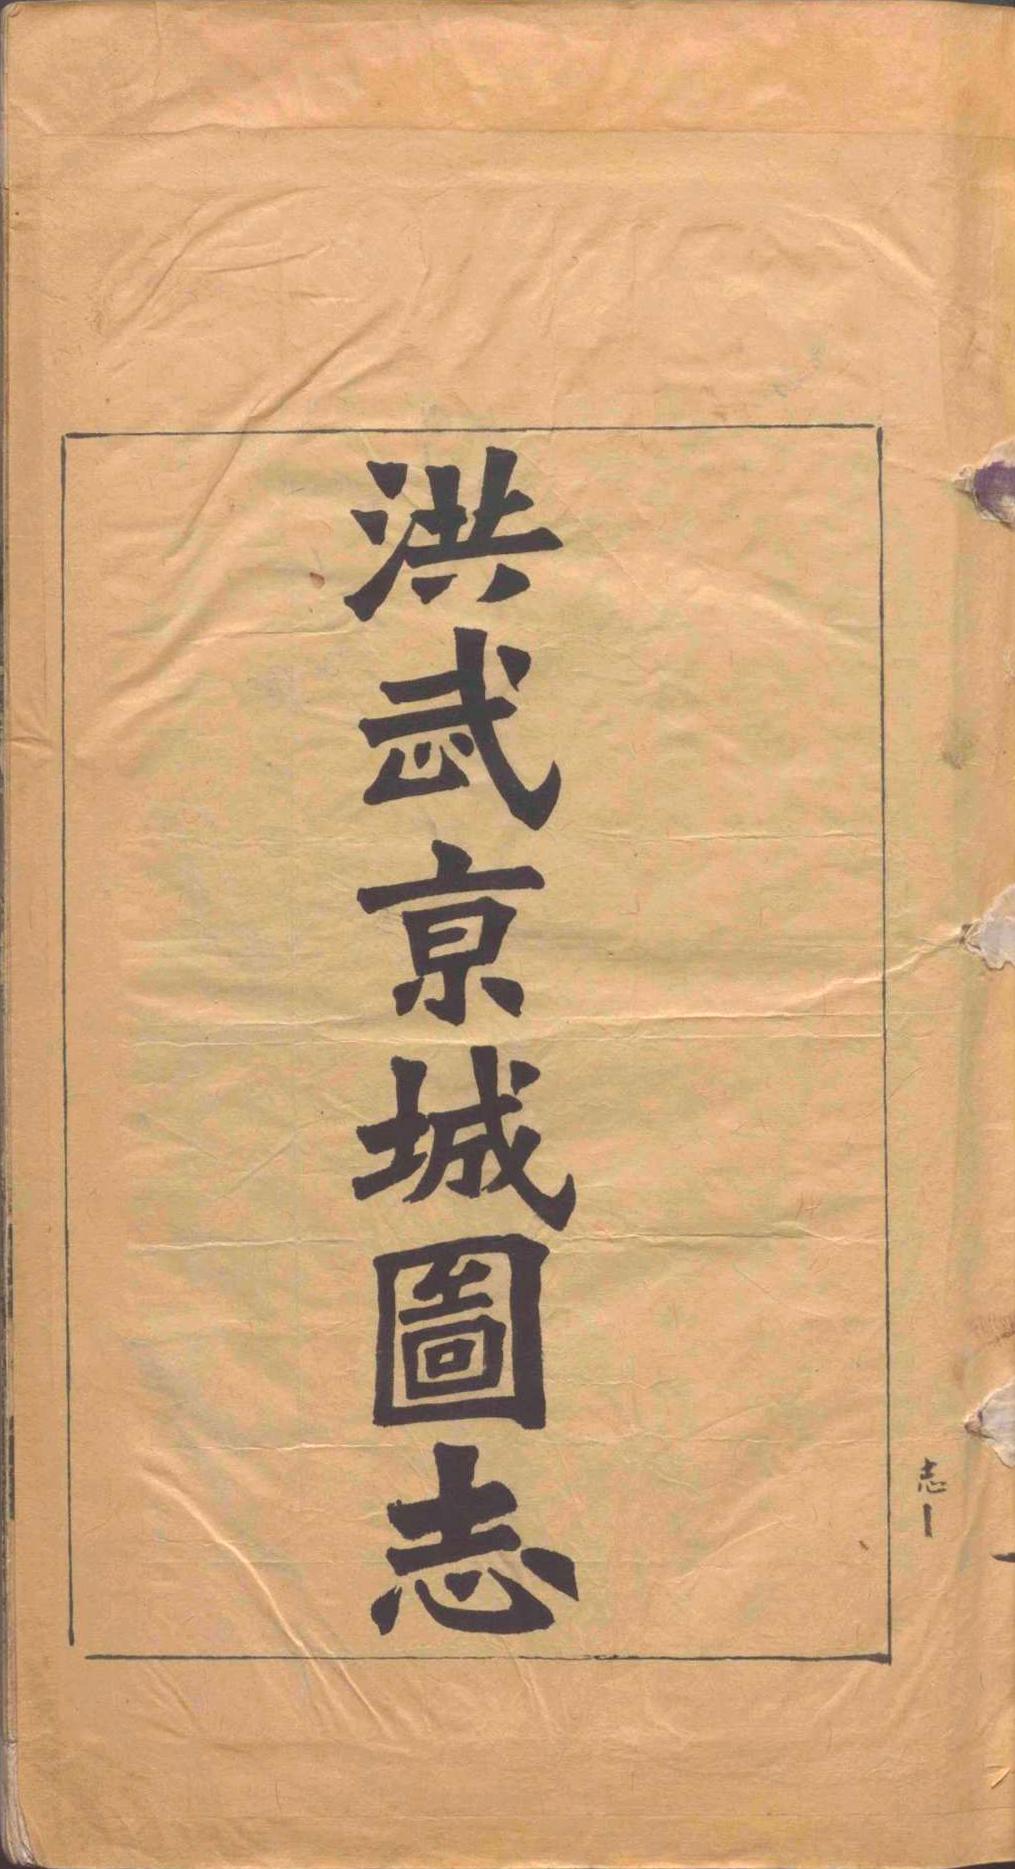 洪武京城圖志
志一